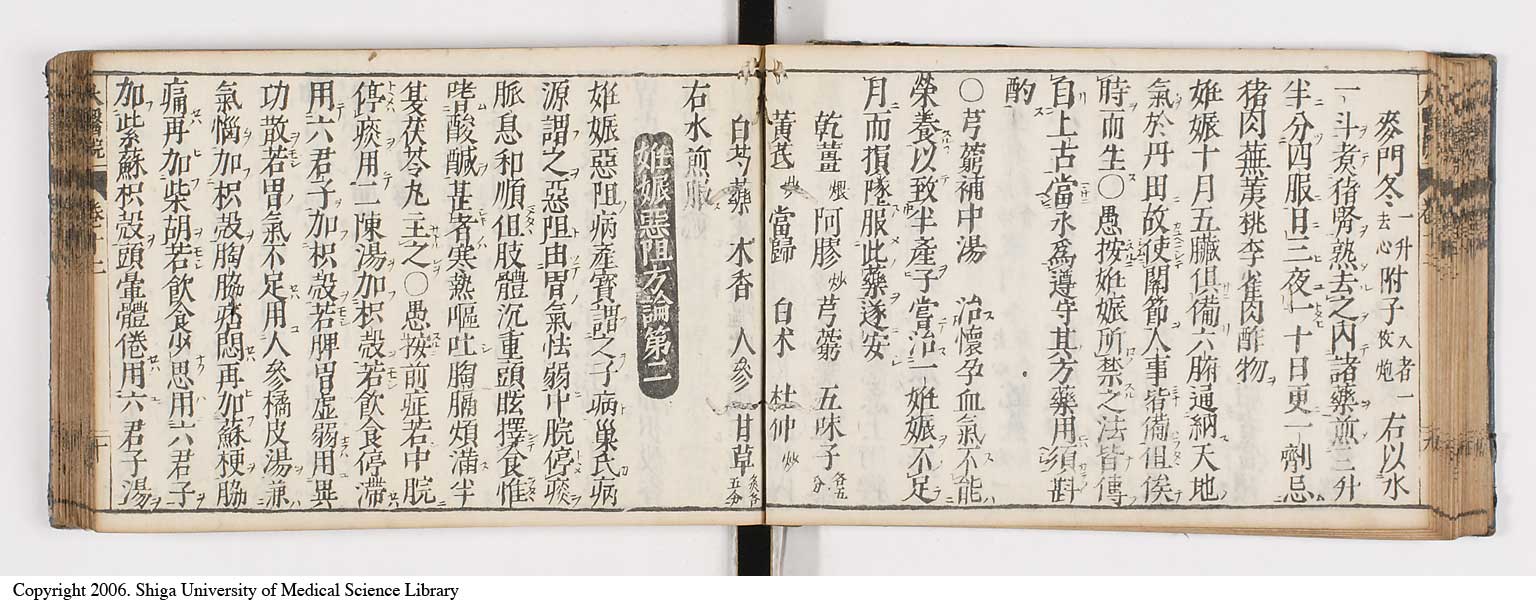 麥門冬 一升去心 附子 大者一枚炮 右以水
一斗煮猪腎熟去之內諸藥煎三升
半分四服日三夜一十日更一劑忌
猪肉蕪荑桃李雀肉酢物
姙娠十月五臟俱備六腑通納天地
氣於丹田故使關節人事皆備但俟
時而生〇愚按姙娠所禁之法皆傳
自上古當永為遵守其方藥用須斟
酌
〇芎藭補中湯 治懷孕血氣不能
榮養以致半產子嘗治一姙娠不足
月而損墜服此藥遂安
乾薑 煨 阿膠 炒 芎藭 五味子 各五分
黃芪 當歸 白术 杜仲 炒
白芍藥 木香 人參 甘草 炙各五分
右水煎服
姙娠惡阻方論第二
姙娠惡阻病產寶謂之子病巢氏病
源謂之惡阻由胃氣怯弱中脘停痰
脈息和順但肢體沉重頭眩擇食惟
嗜酸鹹甚者寒熱嘔吐胸膈煩滿半
夏茯苓丸主之〇愚按前症若中脘
停痰用二陳湯加枳殼若飲食停滯
用六君子加枳殼若脾胃虛弱用異
功散若胃氣不足用人參橘皮湯兼
氣惱加枳殼胸脇痞悶再加蘇梗脇
痛再加柴胡若飲食少思用六君子
加紫蘇枳殼頭暈體倦用六君子湯
Copyright 2006. Shiga University of Medical Science Library